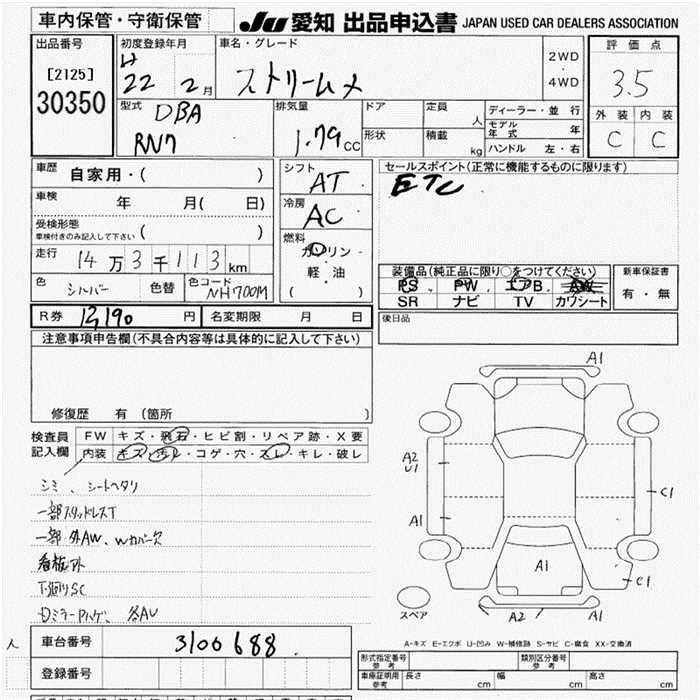 車内保管・守衛保管
JU 愛知 出品申込書 JAPAN USED CAR DEALERS ASSOCIATION
出品番号
[2125]
30350
初度登録年月
H
22 2月
車名・グレード
ストリーム
2WD
・
4WD
評価点
3.5
外装 内装
C C
型式 DBA
RN7
排気量
1.79 cc
ドア
形状
定員 人
積載 kg
ディーラー・並行
モデル年式 年
ハンドル 左・右
車歴 自家用・( )
車検 年 月( 日)
受検形態
車検付きのみ記入して下さい ( )
走行 14万3千113km
色 シルバー 色替 色コード NH700M
シフト AT
冷房 AC
燃料
ガソリン
軽・油
( )
セールスポイント(正常に機能するものに限ります)
ETC
装備品(純正品に限り○をつけてください)
PS PW エアB AW
SR ナビ TV カワシート
新車保証書
有・無
R券 13,190 円 名変期限 月 日
後日品
注意事項申告欄(不具合内容等は具体的に記入して下さい)
修復歴 有 (箇所 )
検査員
記入欄
FW キズ・飛石・ヒビ割・リペア跡・X要
内装 キズ・汚レ・コゲ・穴・スレ・キレ・破レ
シミ、シートヘタリ
一部スタッドレスT
一部外AW、Wカバー欠
看板下外
下廻りSC
各AU
A1
A2
U1
A1
C1
A1
C1
A2
A1
スペア
A-キズ E-エクボ U-凹み W-補修跡 S-サビ C-腐食 XX-交換済
人
車台番号 3100688
登録番号
形式指定番号
参考
類別区分番号
参考
車庫証明用
参考
長さ cm
幅 cm
高さ cm